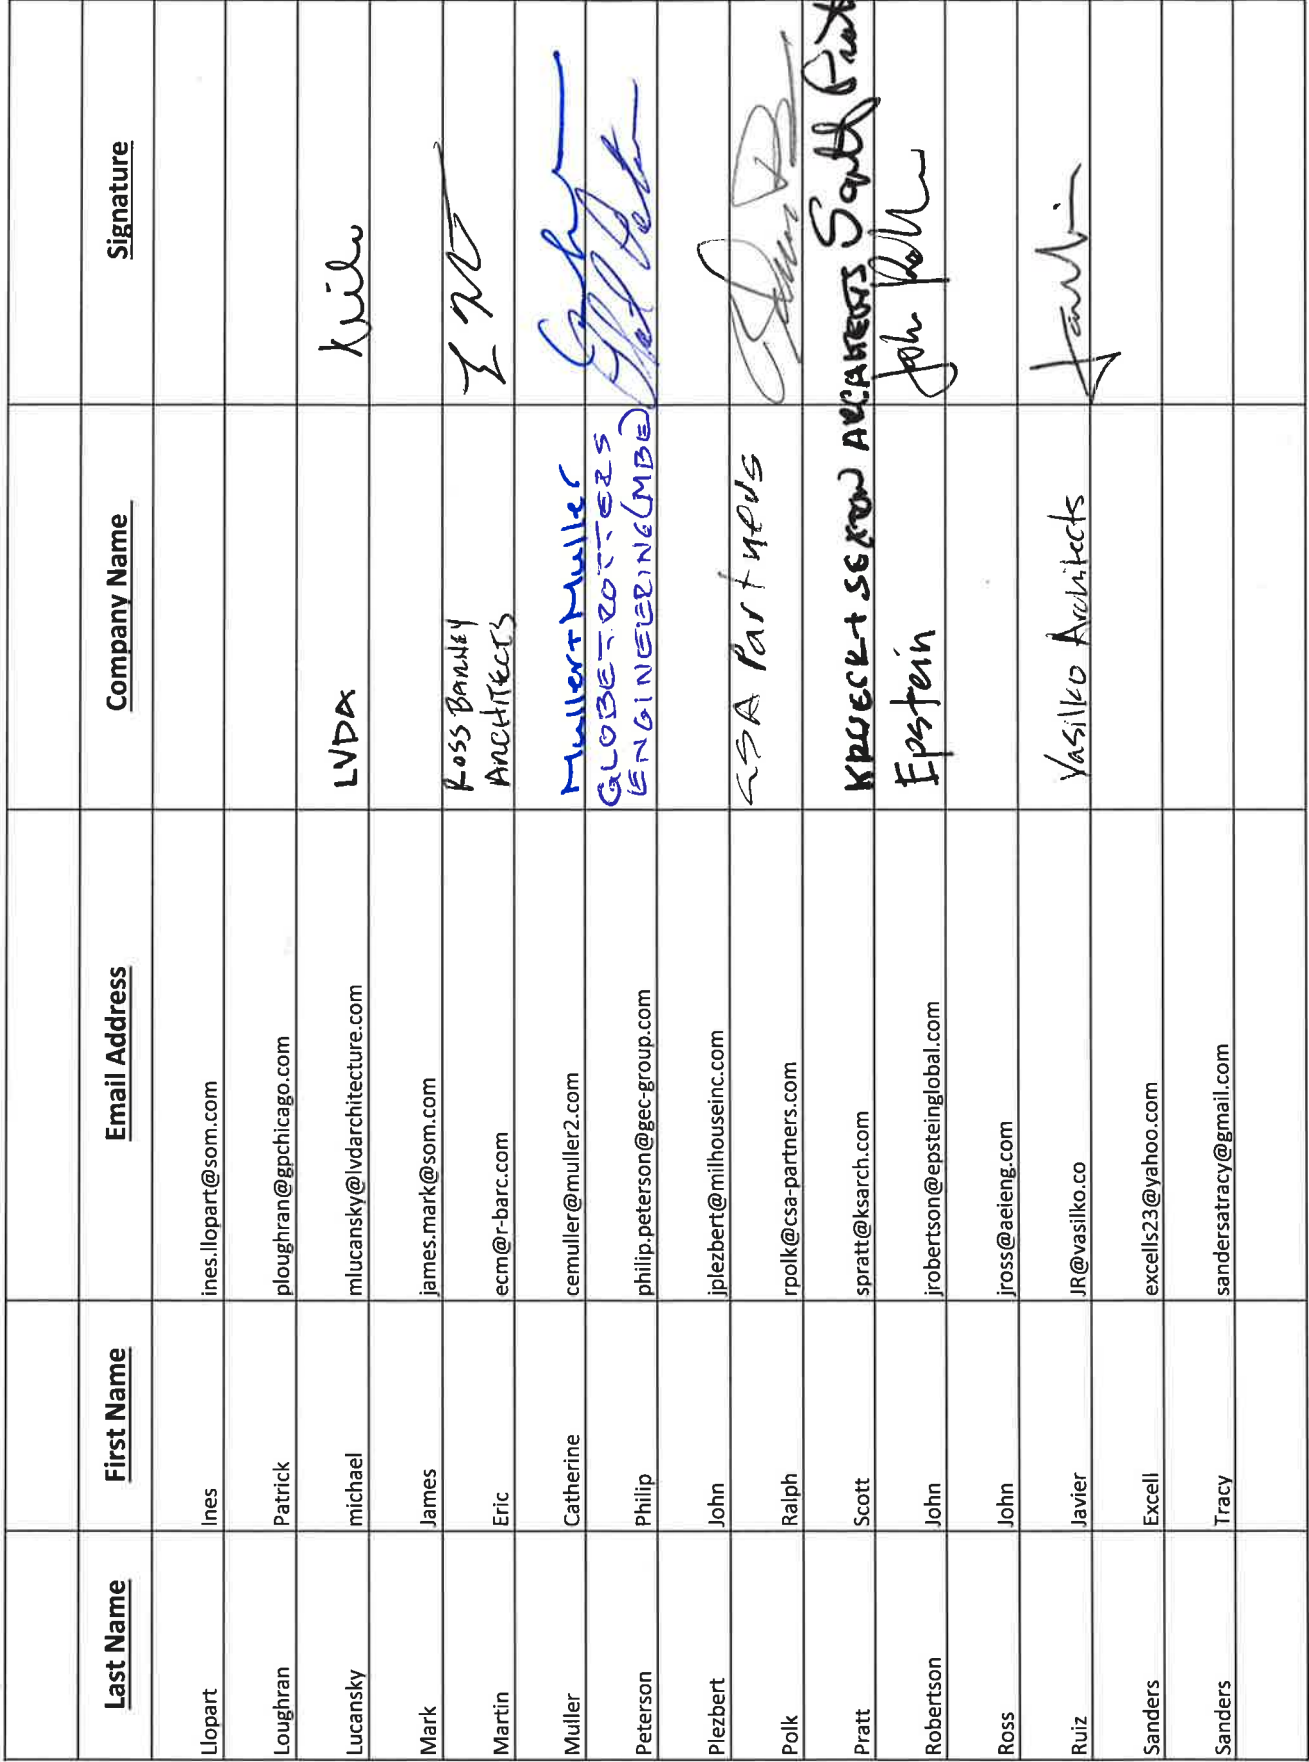 Last Name First Name Email Address Company Name Signature
Llopart Ines ines.llopart@som.com
Loughran Patrick ploughran@gpchicago.com
Lucansky michael mlucansky@lvdarchitecture.com LVDA
Mark James james.mark@som.com
Martin Eric ecm@r-barc.com Ross Barney
Architects
Muller Catherine cemuller@muller2.com Muller+Muller
Peterson Philip philip.peterson@gec-group.com GLOBETROTTERS
ENGINEERING (MBE)
Plezbert John jplezbert@milhouseinc.com
Polk Ralph rpolk@csa-partners.com CSA Partners
Pratt Scott spratt@ksarch.com KRUECK + SEXTON ARCHITECTS Scott Pratt
Robertson John jrobertson@epsteinglobal.com Epstein John
Ross John jross@aeieng.com
Ruiz Javier JR@vasilko.co Vasilko Architects
Sanders Excell excells23@yahoo.com
Sanders Tracy sandersatracy@gmail.com